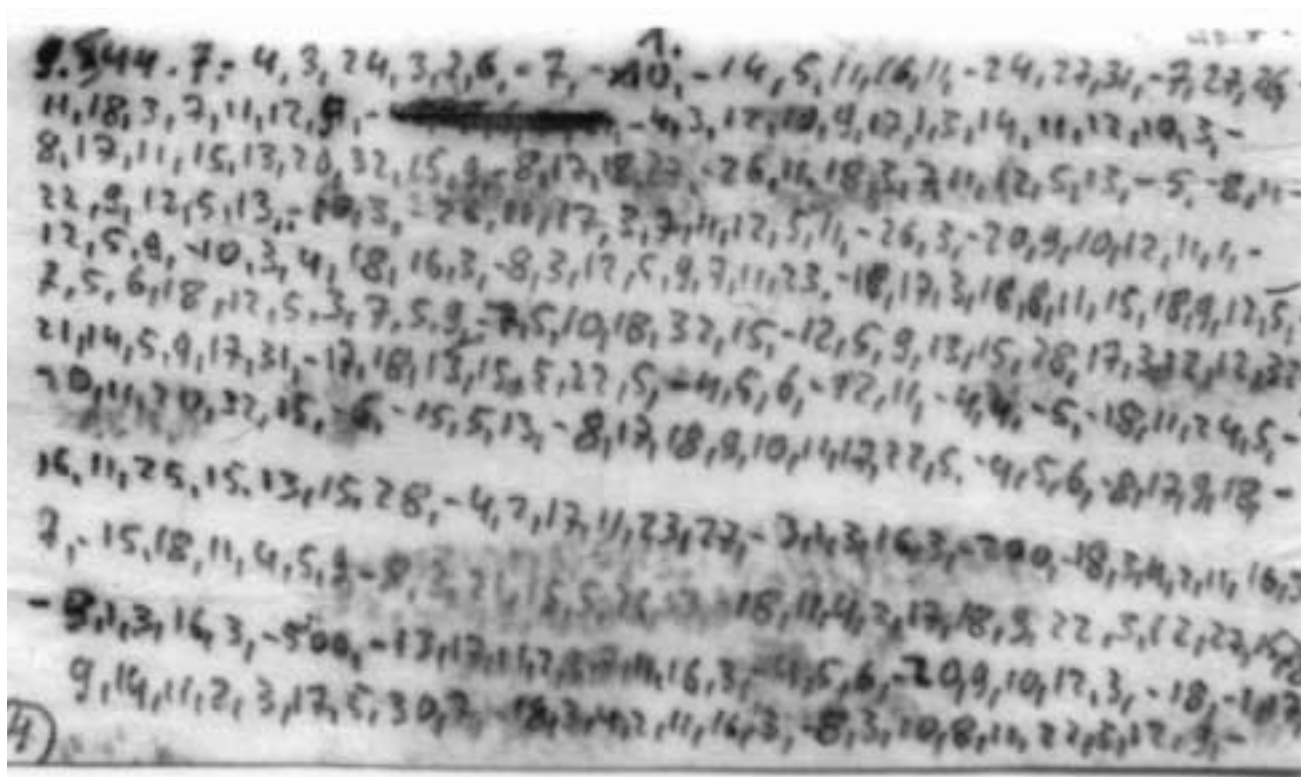 9.5.44.7.- 4,3,24,3,2,6,-7,-10,-14,5,11,16,11,-24,27,31,-7,27,26,
11,18,3,7,11,12,9,- -4,3,12,10,9,17,1,3,14,11,12,10,3,-
8,17,11,15,13,20,32,15,9,-8,17,18,27,-26,11,18,3,7,11,12,5,13,-5,-8,11,-
22,9,12,5,13,-10,3,-26,11,17,3,7,11,12,5,11,-26,3,-20,9,10,12,11,1,-
12,5,9,-10,3,4,18,16,3,-8,3,12,5,9,7,11,23,-18,17,3,18,8,11,15,18,9,12,5,
2,5,6,18,12,5,3,7,5,9,-7,5,10,18,32,15,-12,5,9,13,15,28,17,3,12,12,32
21,14,5,9,17,31,-17,18,13,15,5,22,5,-4,5,6,-12,11,-4,4,-5,-18,11,24,5,-
20,11,20,32,15,-6,-15,5,13,-8,17,18,9,10,11,12,22,5,-4,5,6,-8,17,9,18,-
16,11,25,15,13,15,28,-4,2,17,11,23,27,-3,1,3,16,3,-200,-18,3,4,2,11,16,3
7,-15,18,11,4,5,9 18,11,4,2,17,18,9,22,3,12,27,15,
1,3,16,3,-500,-13,17,11, 16,3,-4,5,6,-20,9,10,12,3,-18,-1,17
9,14,11,2,3,17,5,30,7,-18,3,4,2,11,16,3,-8,3,10,8,11,22,5,12,9,-
4